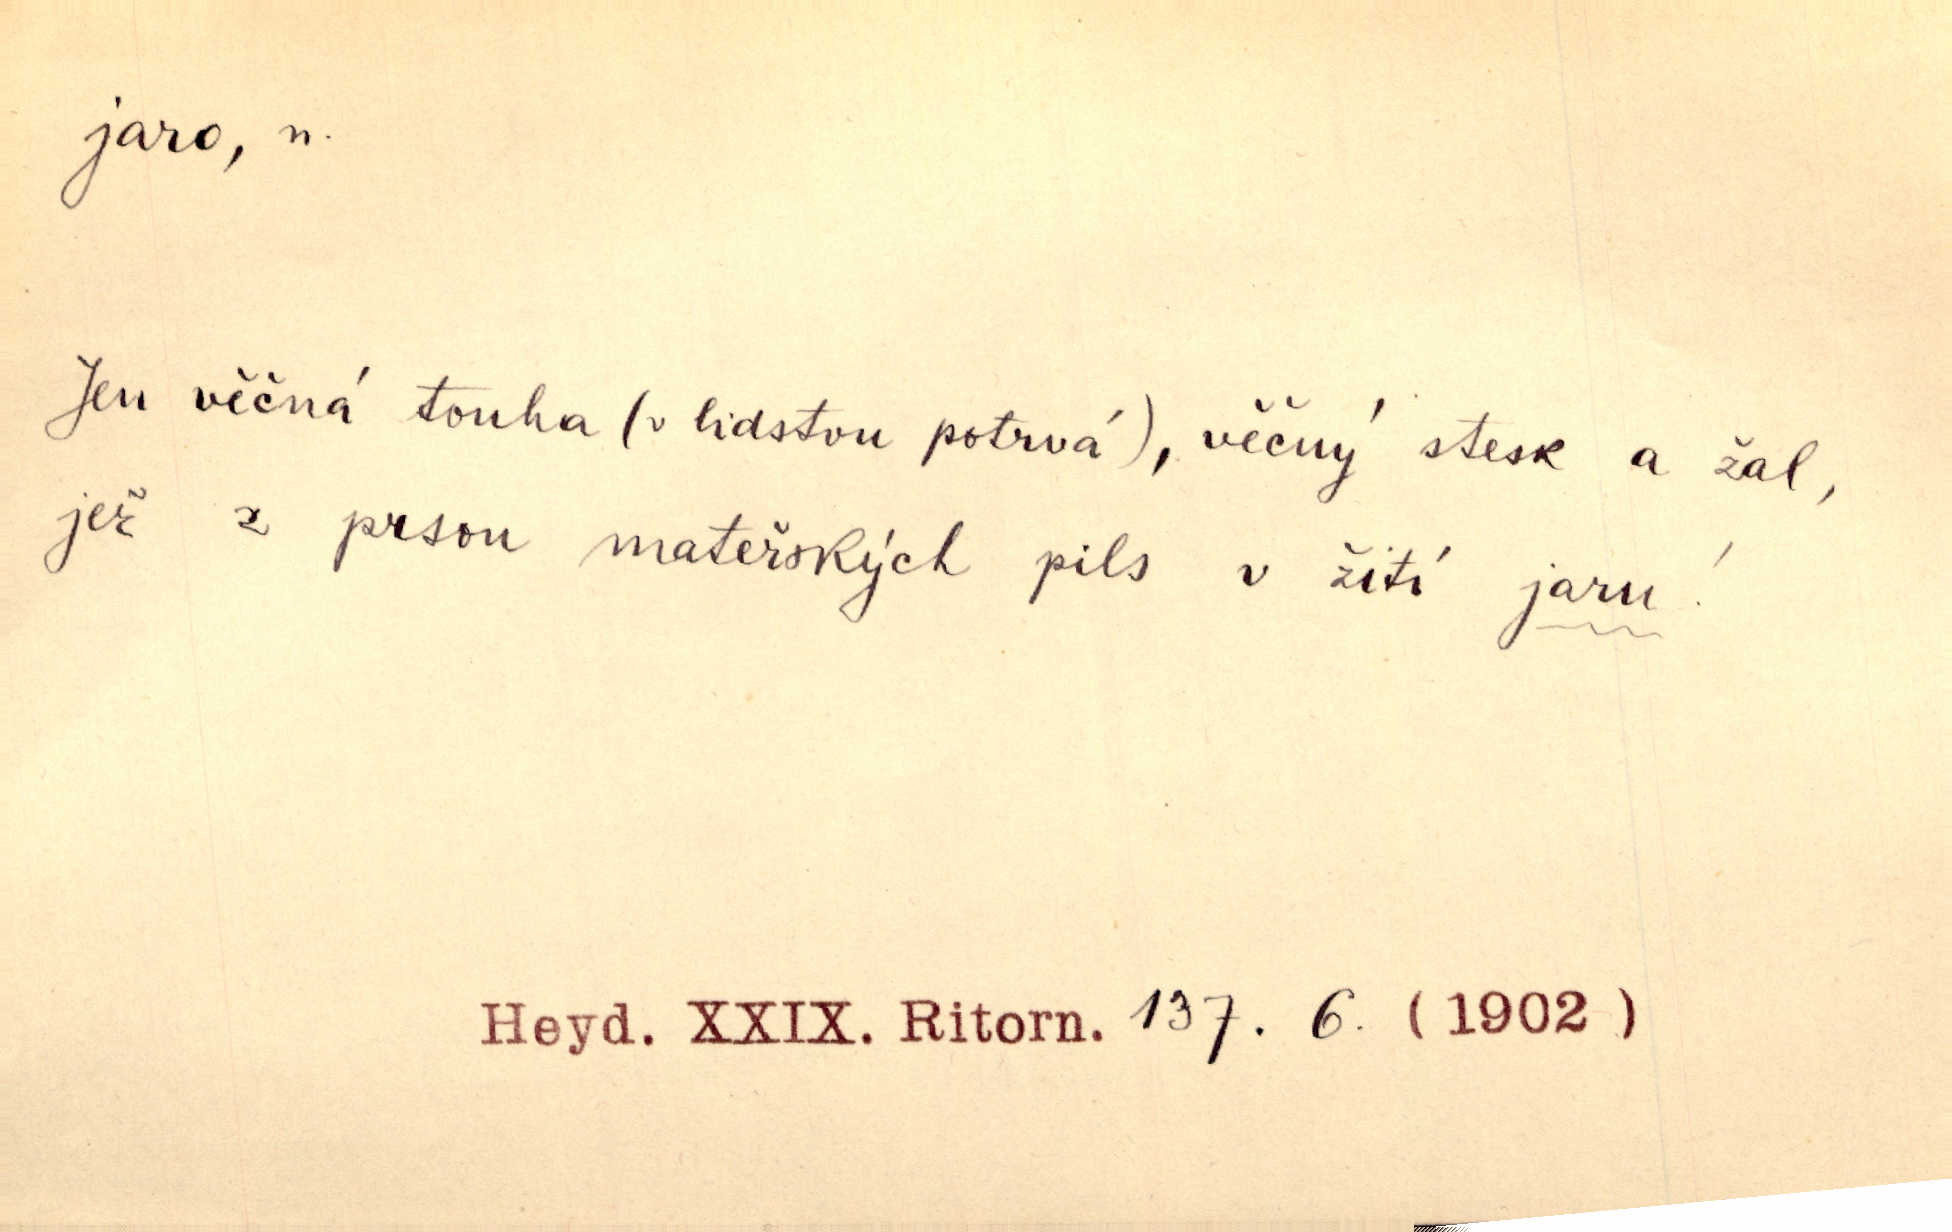 jaro, n.
Jen věčná touha (v lidstvu potrvá), věčný stesk a žal,
jež z prsou mateřských pils v žití jaru!
Heyd. XXIX. Ritorn. 137. 6. (1902)